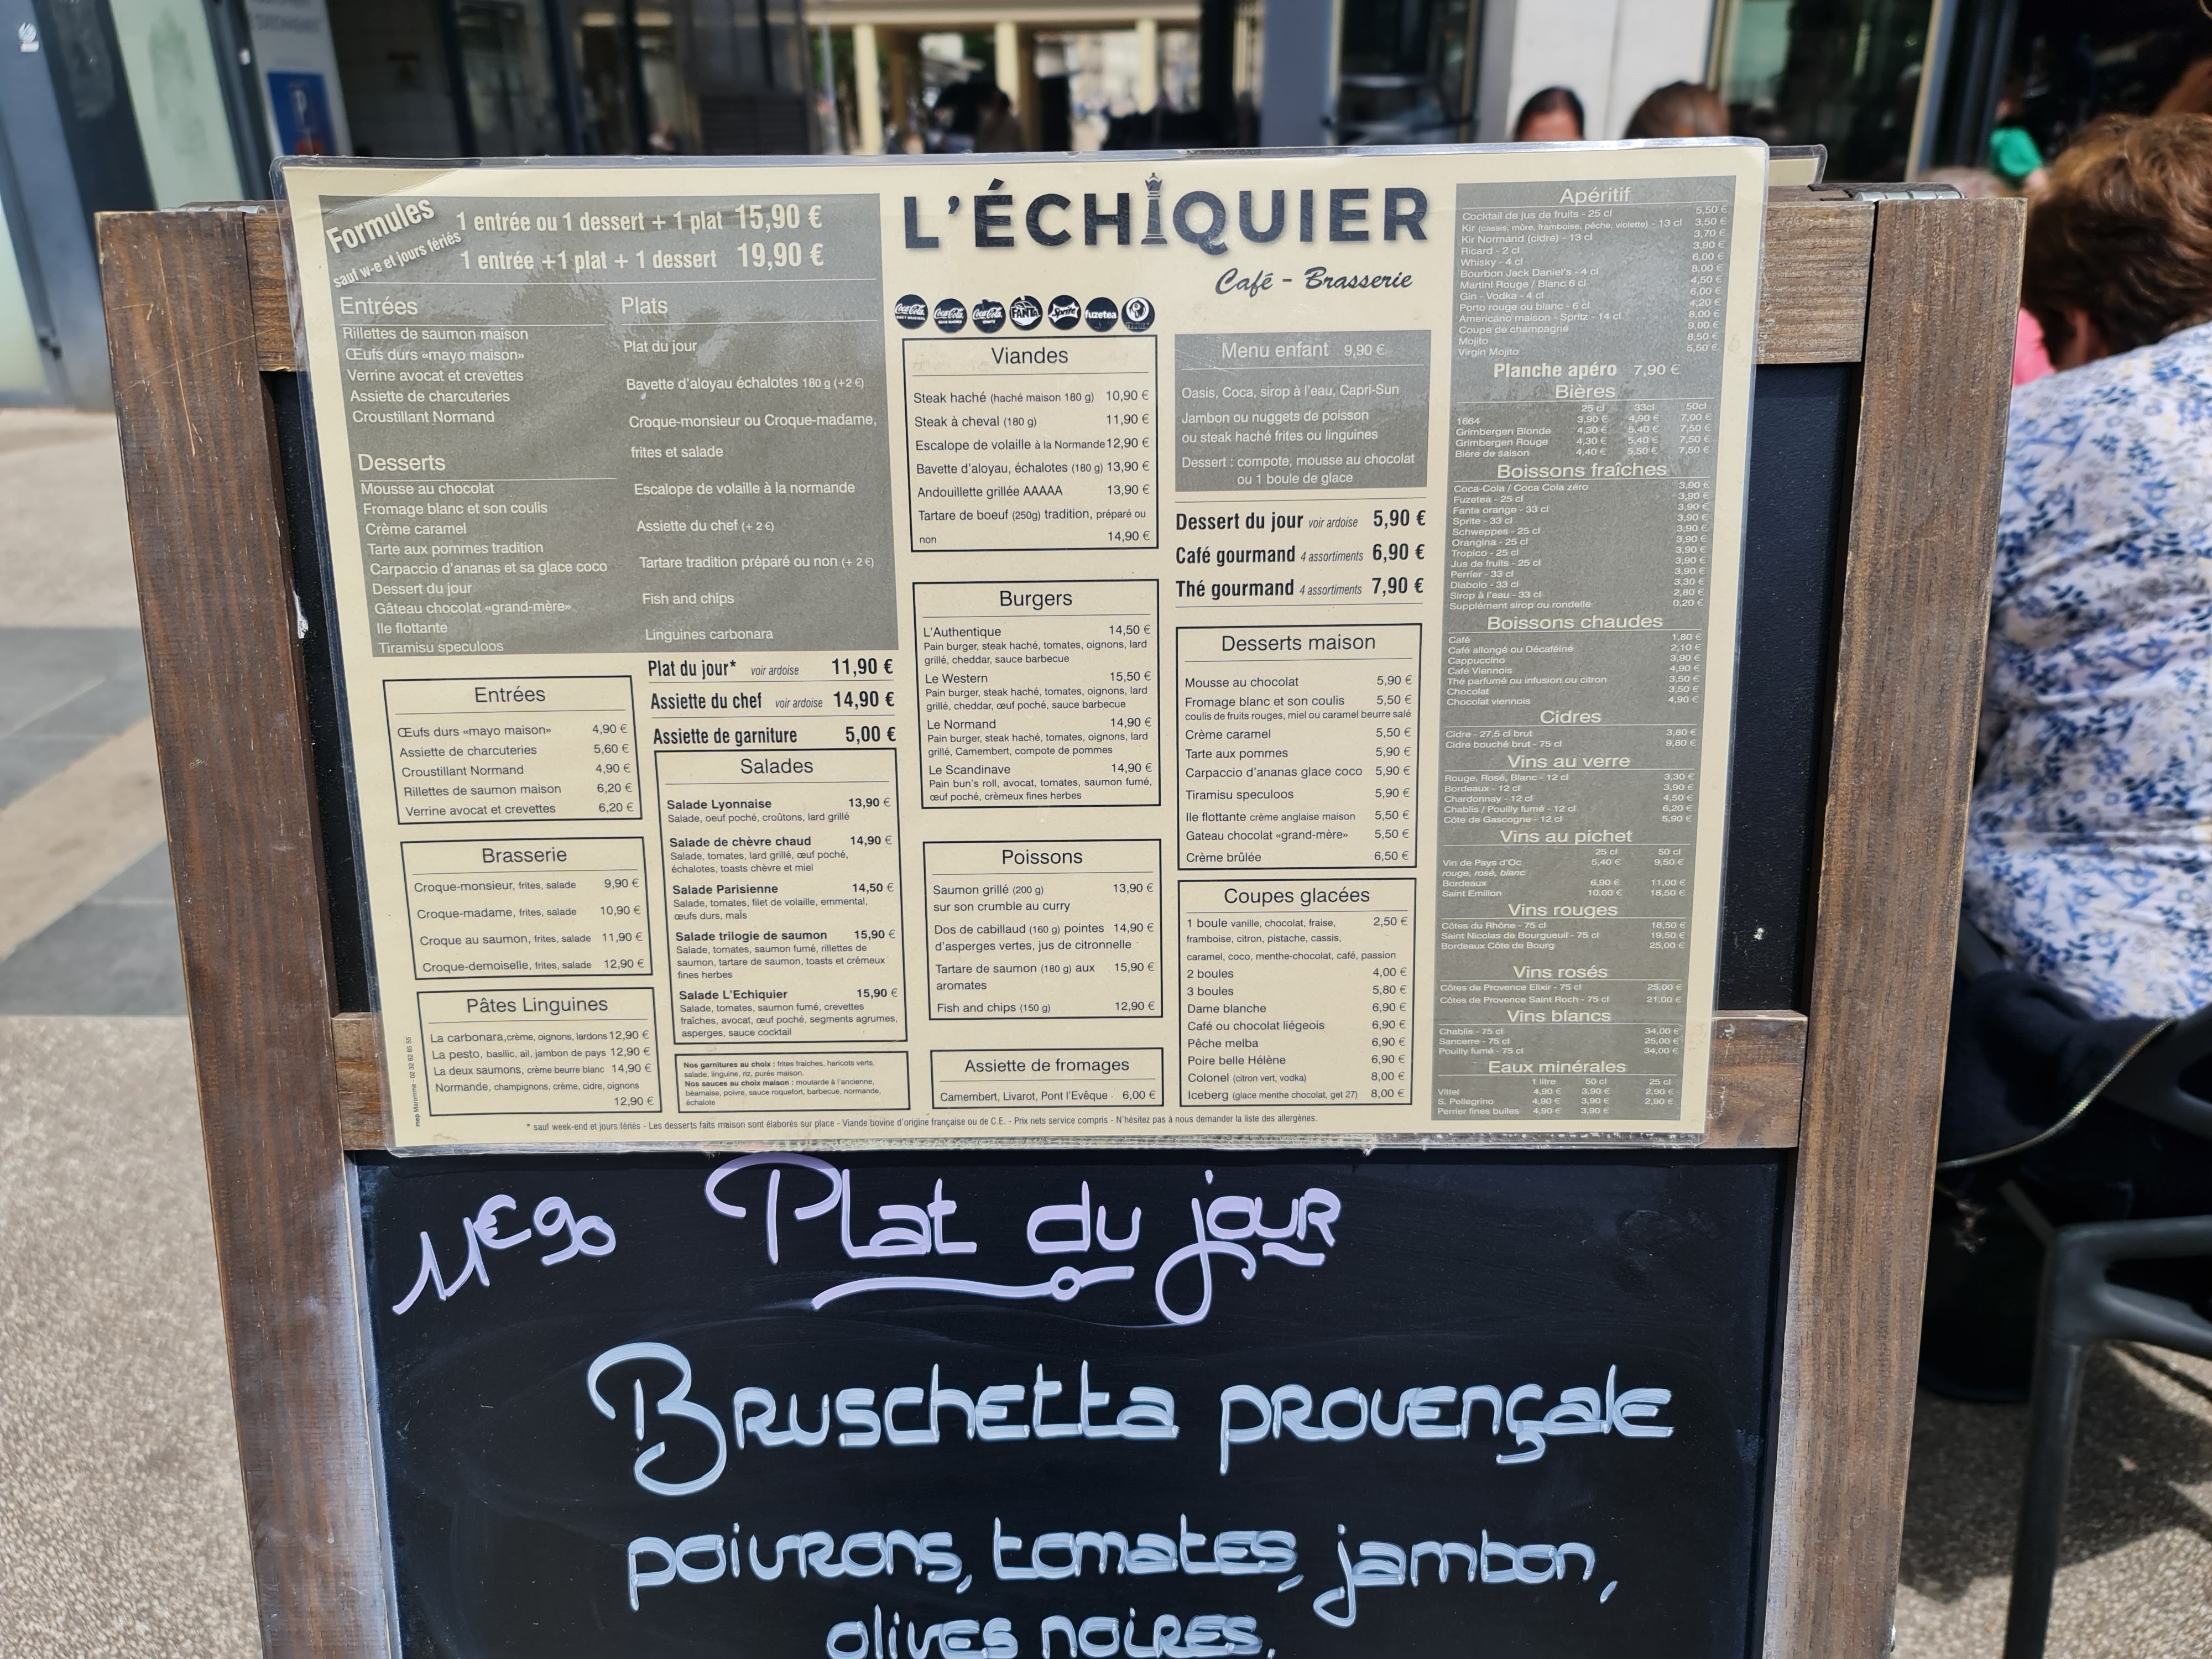 Formules
sauf w-e et jours fériés
1 entrée ou 1 dessert + 1 plat 15,90 €
1 entrée +1 plat + 1 dessert 19,90 €
Entrées
Rillettes de saumon maison
Œufs durs «mayo maison»
Verrine avocat et crevettes
Assiette de charcuteries
Croustillant Normand
Desserts
Mousse au chocolat
Fromage blanc et son coulis
Crème caramel
Tarte aux pommes tradition
Carpaccio d'ananas et sa glace coco
Dessert du jour
Gâteau chocolat «grand-mère»
Ile flottante
Tiramisu speculoos
Plats
Plat du jour
Bavette d'aloyau échalotes 180 g (+2 €)
Croque-monsieur ou Croque-madame,
frites et salade
Escalope de volaille à la normande
Assiette du chef (+ 2 €)
Tartare tradition préparé ou non (+ 2 €)
Fish and chips
Linguines carbonara
Plat du jour* voir ardoise 11,90 €
Assiette du chef voir ardoise 14,90 €
Assiette de garniture 5,00 €
Entrées
Œufs durs «mayo maison» 4,90 €
Assiette de charcuteries 5,60 €
Croustillant Normand 4,90 €
Rillettes de saumon maison 6,20 €
Verrine avocat et crevettes 6,20 €
Brasserie
Croque-monsieur, frites, salade 9,90 €
Croque-madame, frites, salade 10,90 €
Croque au saumon, frites, salade 11,90 €
Croque-demoiselle, frites, salade 12,90 €
Pâtes Linguines
La carbonara,crème, oignons, lardons 12,90 €
La pesto, basilic, ail, jambon de pays 12,90 €
La deux saumons, crème beurre blanc 14,90 €
Normande, champignons, crème, cidre, oignons
12,90 €
Salades
Salade Lyonnaise 13,90 €
Salade, oeuf poché, croûtons, lard grillé
Salade de chèvre chaud 14,90 €
Salade, tomates, lard grillé, œuf poché,
échalotes, toasts chèvre et miel
Salade Parisienne 14,50 €
Salade, tomates, filet de volaille, emmental,
œufs durs, maïs
Salade trilogie de saumon 15,90 €
Salade, tomates, saumon fumé, rillettes de
saumon, tartare de saumon, toasts et crémeux
fines herbes
Salade L'Echiquier 15,90 €
Salade, tomates, saumon fumé, crevettes
fraîches, avocat, œuf poché, segments agrumes,
asperges, sauce cocktail
Nos garnitures au choix : frites fraiches, haricots verts,
salade, linguine, riz, purée maison.
Nos sauces au choix maison : moutarde à l'ancienne,
béarnaise, poivre, sauce roquefort, barbecue, normande,
échalote
L'ÉCHIQUIER
Café - Brasserie
Coca-Cola
Coca-Cola
Coca-Cola
FANTA
Sprite
fuzetea
Viandes
Steak haché (haché maison 180 g) 10,90 €
Steak à cheval (180 g) 11,90 €
Escalope de volaille à la Normande 12,90 €
Bavette d'aloyau, échalotes (180 g) 13,90 €
Andouillette grillée AAAAA 13,90 €
Tartare de boeuf (250g) tradition, préparé ou
non 14,90 €
Burgers
L'Authentique 14,50 €
Pain burger, steak haché, tomates, oignons, lard
grillé, cheddar, sauce barbecue
Le Western 15,50 €
Pain burger, steak haché, tomates, oignons, lard
grillé, cheddar, œuf poché, sauce barbecue
Le Normand 14,90 €
Pain burger, steak haché, tomates, oignons, lard
grillé, Camembert, compote de pommes
Le Scandinave 14,90 €
Pain bun's roll, avocat, tomates, saumon fumé,
œuf poché, crèmeux fines herbes
Poissons
Saumon grillé (200 g) 13,90 €
sur son crumble au curry
Dos de cabillaud (160 g) pointes 14,90 €
d'asperges vertes, jus de citronnelle
Tartare de saumon (180 g) aux 15,90 €
aromates
Fish and chips (150 g) 12,90 €
Assiette de fromages
Camembert, Livarot, Pont l'Evêque 6,00 €
Menu enfant 9,90 €
Oasis, Coca, sirop à l'eau, Capri-Sun
Jambon ou nuggets de poisson
ou steak haché frites ou linguines
Dessert : compote, mousse au chocolat
ou 1 boule de glace
Dessert du jour voir ardoise 5,90 €
Café gourmand 4 assortiments 6,90 €
Thé gourmand 4 assortiments 7,90 €
Desserts maison
Mousse au chocolat 5,90 €
Fromage blanc et son coulis 5,50 €
coulis de fruits rouges, miel ou caramel beurre salé
Crème caramel 5,50 €
Tarte aux pommes 5,90 €
Carpaccio d'ananas glace coco 5,90 €
Tiramisu speculoos 5,90 €
Ile flottante crème anglaise maison 5,50 €
Gateau chocolat «grand-mère» 5,50 €
Crème brûlée 6,50 €
Coupes glacées
1 boule vanille, chocolat, fraise, 2,50 €
framboise, citron, pistache, cassis,
caramel, coco, menthe-chocolat, café, passion
2 boules 4,00 €
3 boules 5,80 €
Dame blanche 6,90 €
Café ou chocolat liégeois 6,90 €
Pêche melba 6,90 €
Poire belle Hélène 6,90 €
Colonel (citron vert, vodka) 8,00 €
Iceberg (glace menthe chocolat, get 27) 8,00 €
Apéritif
Cocktail de jus de fruits - 25 cl 5,50 €
Kir (cassis, mûre, framboise, pêche, violette) - 13 cl 3,50 €
Kir Normand (cidre) - 13 cl 3,70 €
Ricard - 2 cl 3,90 €
Whisky - 4 cl 6,00 €
Bourbon Jack Daniel's - 4 cl 8,00 €
Martini Rouge / Blanc 6 cl 4,50 €
Gin - Vodka - 4 cl 6,00 €
Porto rouge ou blanc - 6 cl 4,20 €
Americano maison - Spritz - 14 cl 8,00 €
Coupe de champagne 9,00 €
Mojito 8,50 €
Virgin Mojito 5,50 €
Planche apéro 7,90 €
Bières
25 cl 33cl 50cl
1664 3,90 € 4,90 € 7,00 €
Grimbergen Blonde 4,30 € 5,40 € 7,50 €
Grimbergen Rouge 4,30 € 5,40 € 7,50 €
Bière de saison 4,40 € 5,50 € 7,50 €
Boissons fraîches
Coca-Cola / Coca Cola zéro 3,90 €
Fuzetea - 25 cl 3,90 €
Fanta orange - 33 cl 3,90 €
Sprite - 33 cl 3,90 €
Schweppes - 25 cl 3,90 €
Orangina - 25 cl 3,90 €
Tropico - 25 cl 3,90 €
Jus de fruits - 25 cl 3,90 €
Perrier - 33 cl 3,90 €
Diabolo - 33 cl 3,30 €
Sirop à l'eau - 33 cl 2,80 €
Supplément sirop ou rondelle 0,20 €
Boissons chaudes
Café 1,80 €
Café allongé ou Décaféiné 2,10 €
Cappuccino 3,90 €
Café Viennois 4,90 €
Thé parfumé ou infusion ou citron 3,50 €
Chocolat 3,50 €
Chocolat viennois 4,90 €
Cidres
Cidre - 27,5 cl brut 3,80 €
Cidre bouché brut - 75 cl 9,80 €
Vins au verre
Rouge, Rosé, Blanc - 12 cl 3,30 €
Bordeaux - 12 cl 3,90 €
Chardonnay - 12 cl 4,50 €
Chablis / Pouilly fumé - 12 cl 6,20 €
Côte de Gascogne - 12 cl 5,90 €
Vins au pichet
25 cl 50 cl
Vin de Pays d'Oc 5,40 € 9,50 €
rouge, rosé, blanc
Bordeaux 6,90 € 11,00 €
Saint Emilion 10,00 € 18,50 €
Vins rouges
Côtes du Rhône - 75 cl 18,50 €
Saint Nicolas de Bourgueuil - 75 cl 19,50 €
Bordeaux Côte de Bourg 25,00 €
Vins rosés
Côtes de Provence Elixir - 75 cl 25,00 €
Côtes de Provence Saint Roch - 75 cl 21,00 €
Vins blancs
Chablis - 75 cl 34,00 €
Sancerre - 75 cl 25,00 €
Pouilly fumé - 75 cl 34,00 €
Eaux minérales
1 litre 50 cl 25 cl
Vittel 4,90 € 3,90 € 2,90 €
S. Pellegrino 4,90 € 3,90 € 2,90 €
Perrier fines bulles 4,90 € 3,90 €
* sauf week-end et jours fériés - Les desserts faits maison sont élaborés sur place - Viande bovine d'origine française ou de C.E. - Prix nets service compris - N'hésitez pas à nous demander la liste des allergènes.
11€90 Plat du jour
Bruschetta provençale
poivrons, tomates, jambon,
olives noires,